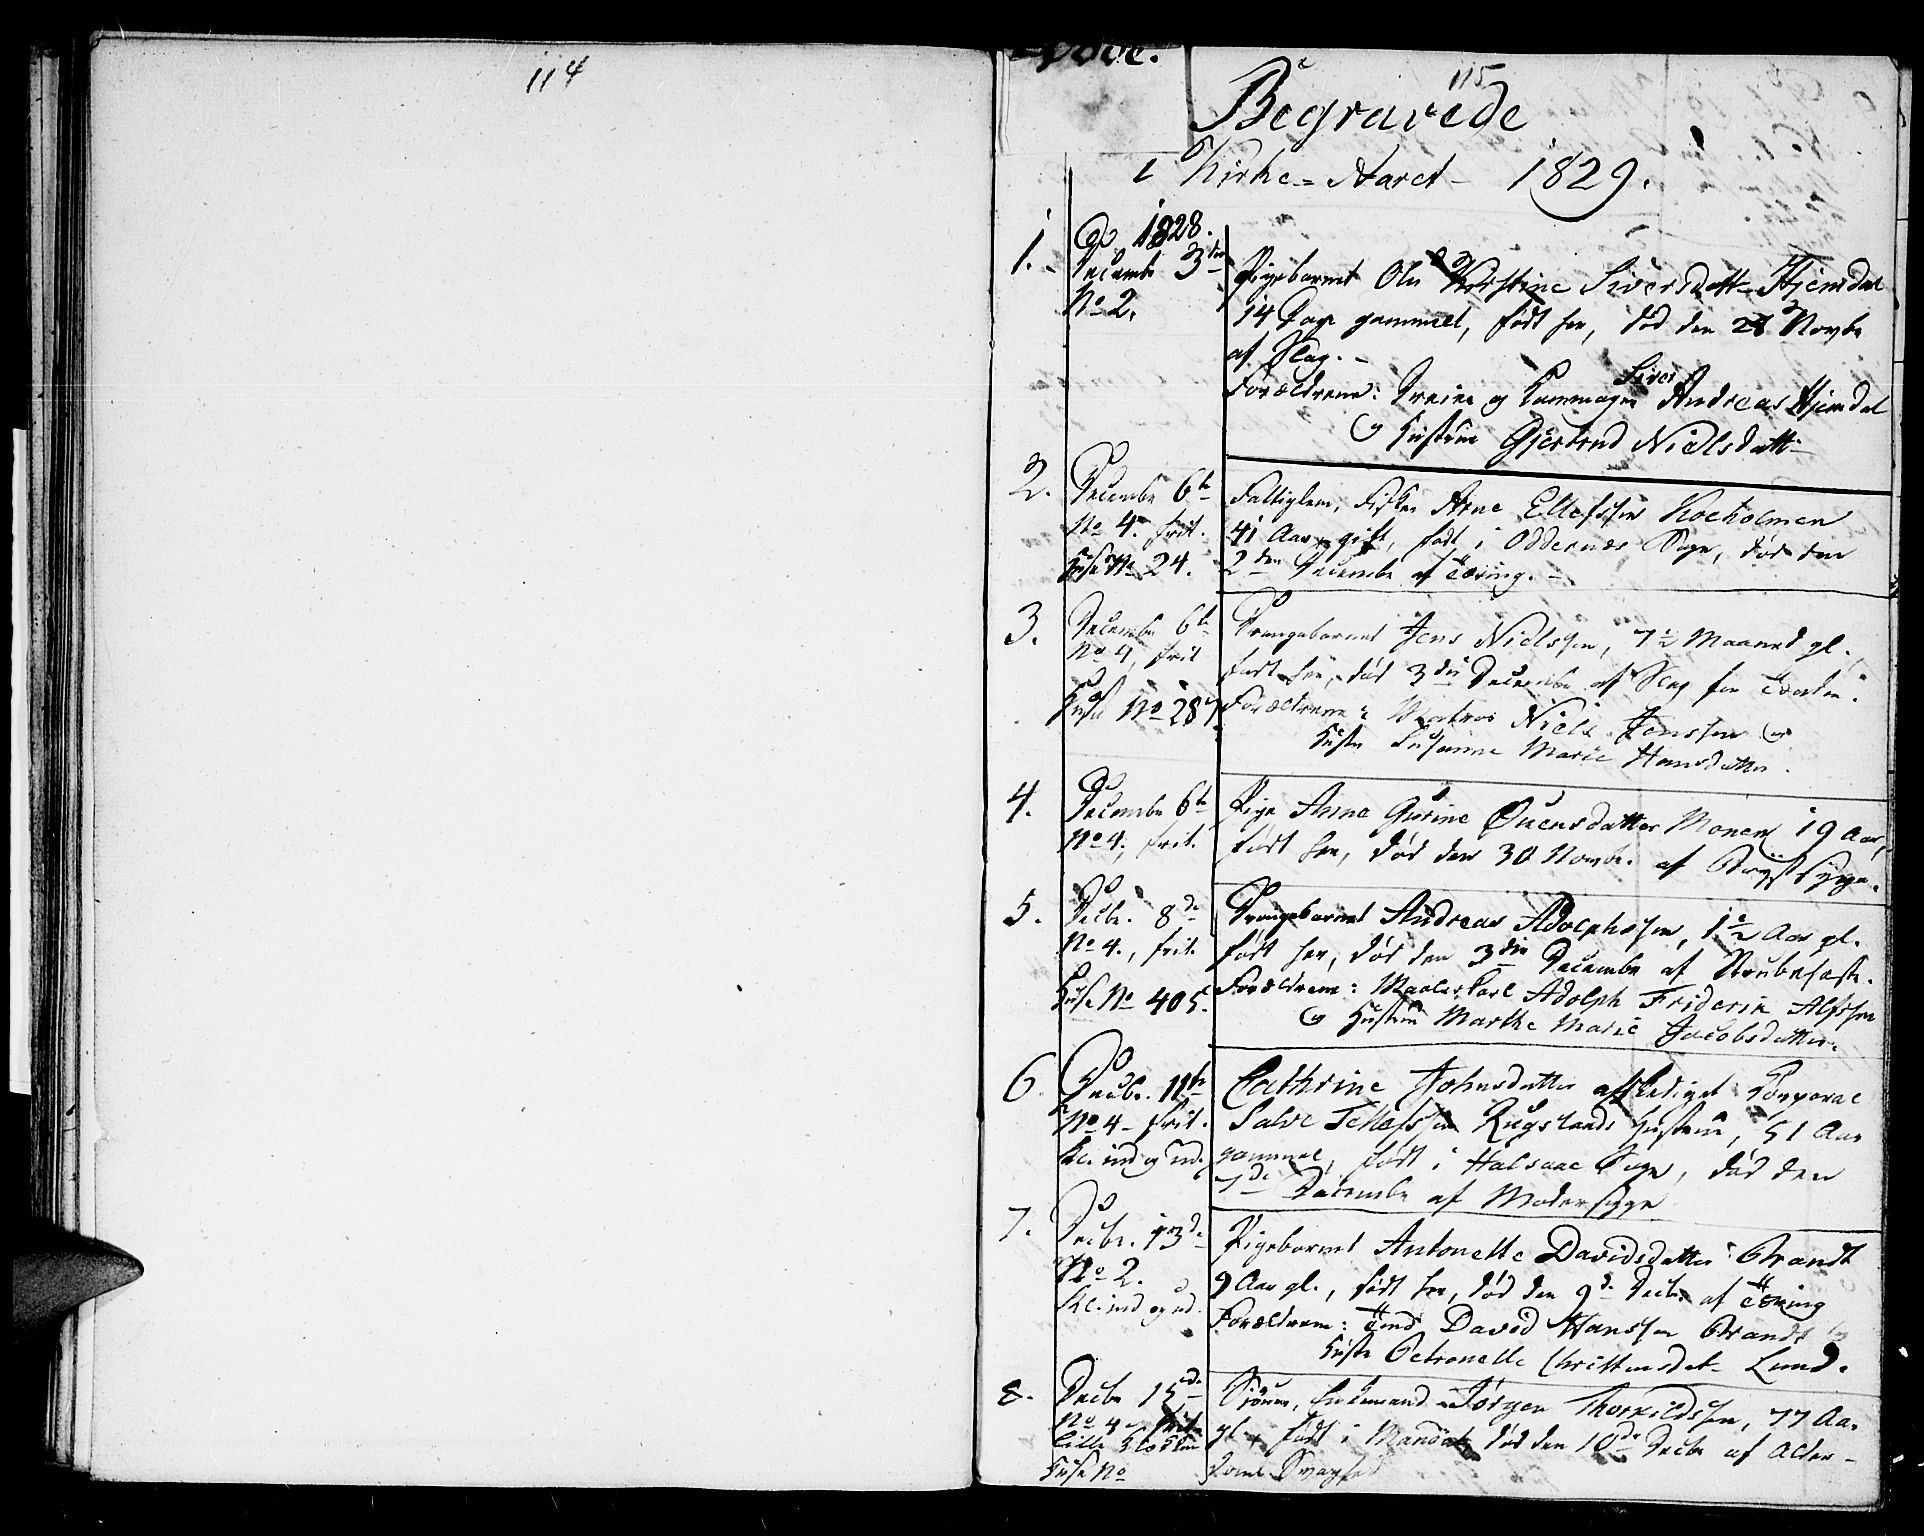 114
115
Begravede
i Kirke-Aaret - 1829.
1. Ao 1828.
Decembr 3die
No 2.
Pigebarnet Kirstine Siversdatt. Hjemdal
14 Dage gammel, født her, død den 28 Novbr
af Slag. -
Forældrene: Dreier og Kammager Siver Andreas Hjemdal
og Hustrue Gjertrud Nielsdatt-
2. Decembr 6te
No 4. frit.
Huse No 24.
Fattiglem, Fisker Arne Ellefssen Koeholmen
41 Aar, gift, født i Oddernæs Sogn, død den
2den Decembr af Tæring. -
3. Decembr 6te
No 4, frit
Huse No 287
Drengebarnet Jens Nielssen, 7½ Maaned gl.,
født her, død 3die Decembr af Slag for Tænder.
Forældrene: Matros Niels Jenssen og
Hustr Susanne Marie Hansdatter.
4. Decembr 6te
No 4, frit.
Pige Anne Gurine Ouensdatter Monen 19 Aar,
født her, død den 30 Novbr. af Brystsyge.
5. Decbr. 8de
No 4., frit.
Huse No 405.
Drengebarnet Andreas Adolphssen, 1½ Aar gl.
født her, død den 3die Decembr af Strubehoste.
Forældrene: Adolph Friderik Alfssen
og Hustrue Marthe Marie Jacobsdatter.
6. Decbr. 11te
No 4 - frit.
Kl. ind og ud.
Cathrine Johnsdatter afskediget Corporal
Salve Tellefssen Rugslands Hustrue, 51 Aar
gammel, født i Halsaae Sogn, død den
7de Decembr af Modersyge
7. Decbr. 13de
No 2.
Kl. ind og ud.
Pigebarnet Antonette Davidsdatter Brandt
9 Aar gl., født her, død den 9de Decbr af Tæring
Forældrene: David Hanssen Brandt og
Hustr Petronelle Christensdat- Lund.
8. Decbr 15de
No 4 frit
Huse No
Enkemand Jørgen Thorkildssen, 77 Aar
gl., født i Mandal, død den 10de Decbr af Alder-
doms Svaghed